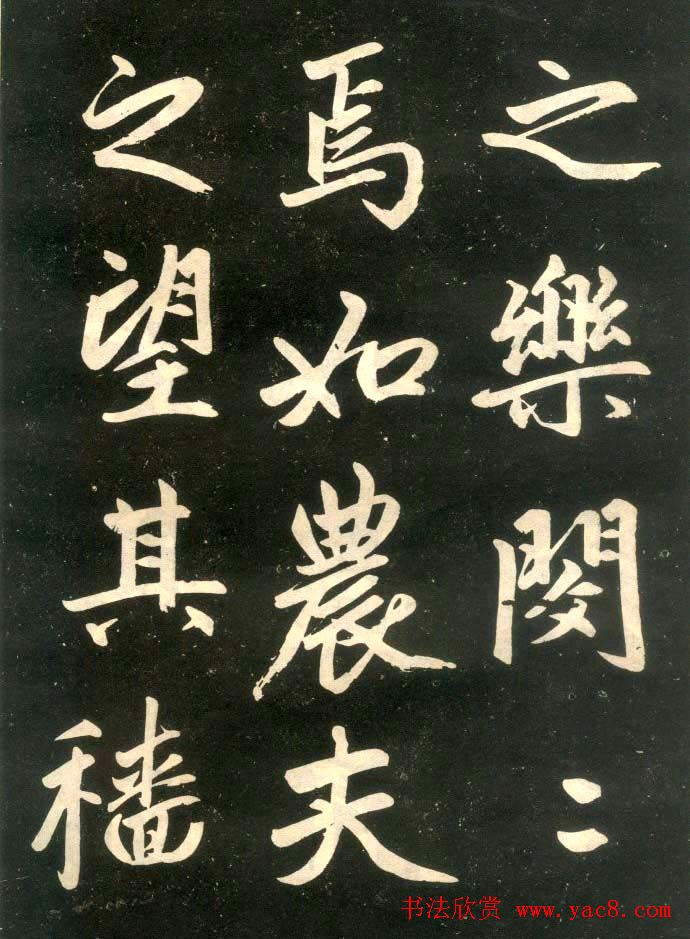 之樂閔〻
焉如農夫
之望其穡
书法欣赏 www.yac8.com